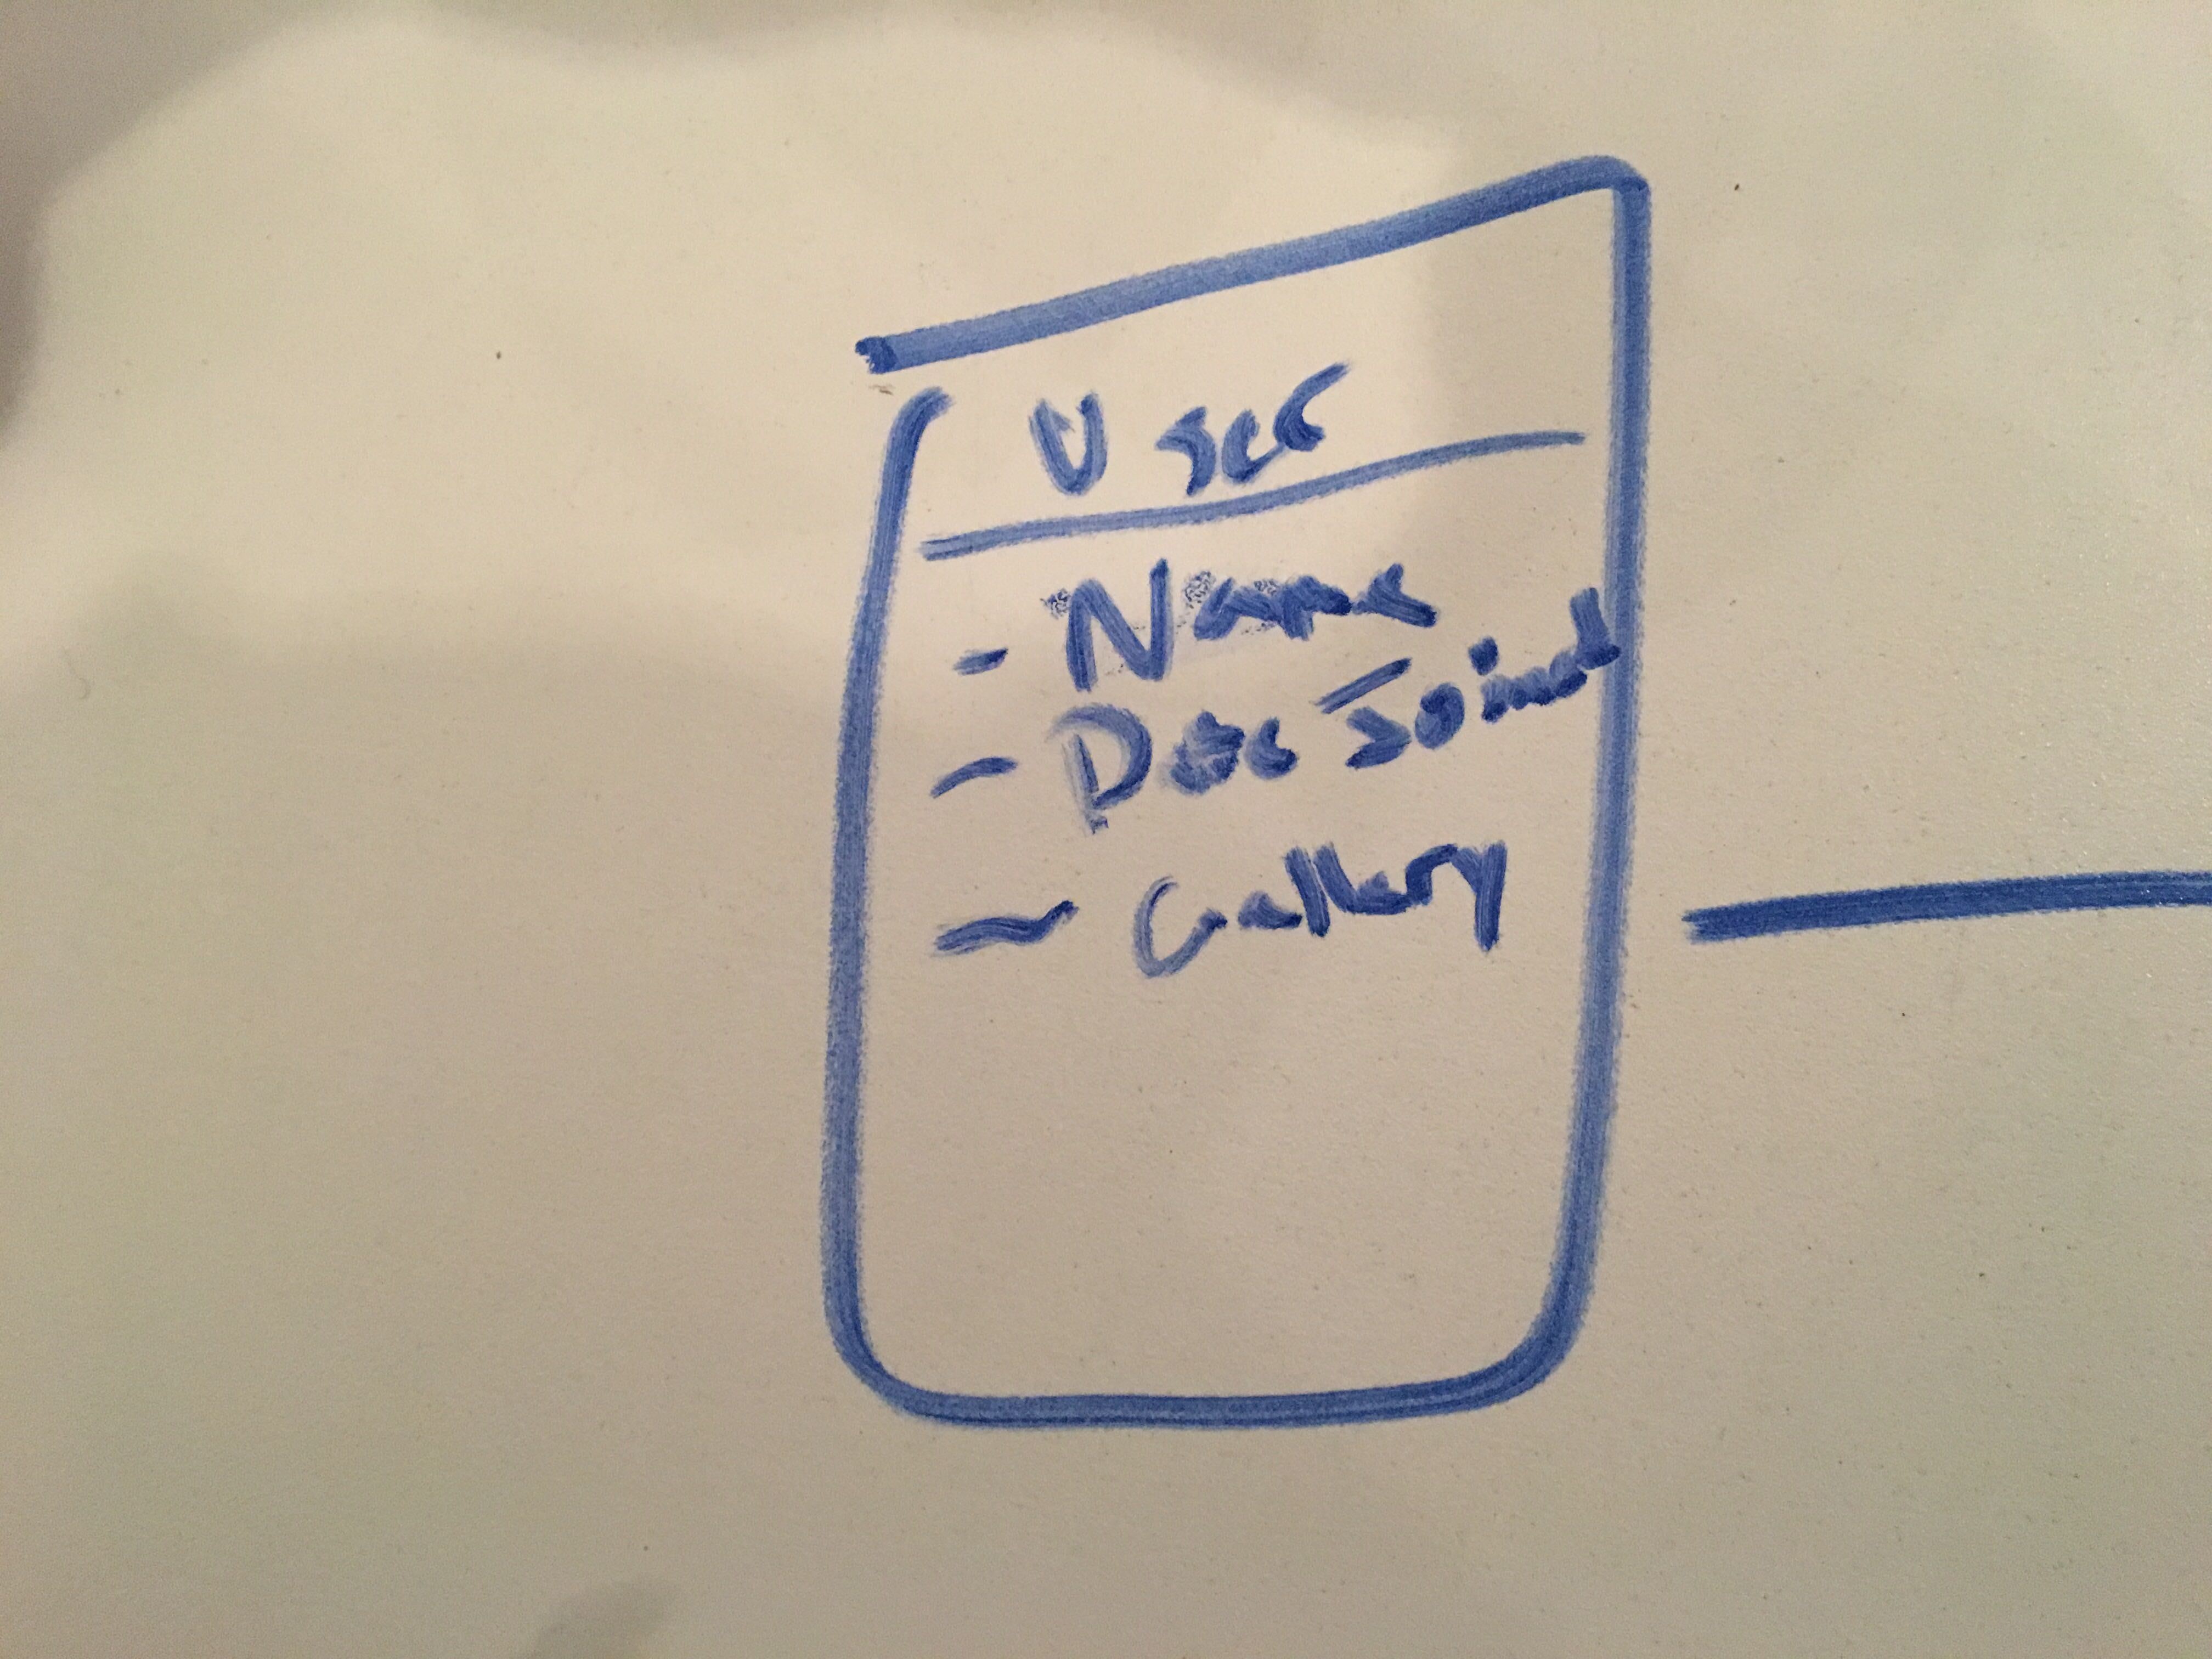 User
- Name
- Date Joined
- Gallery